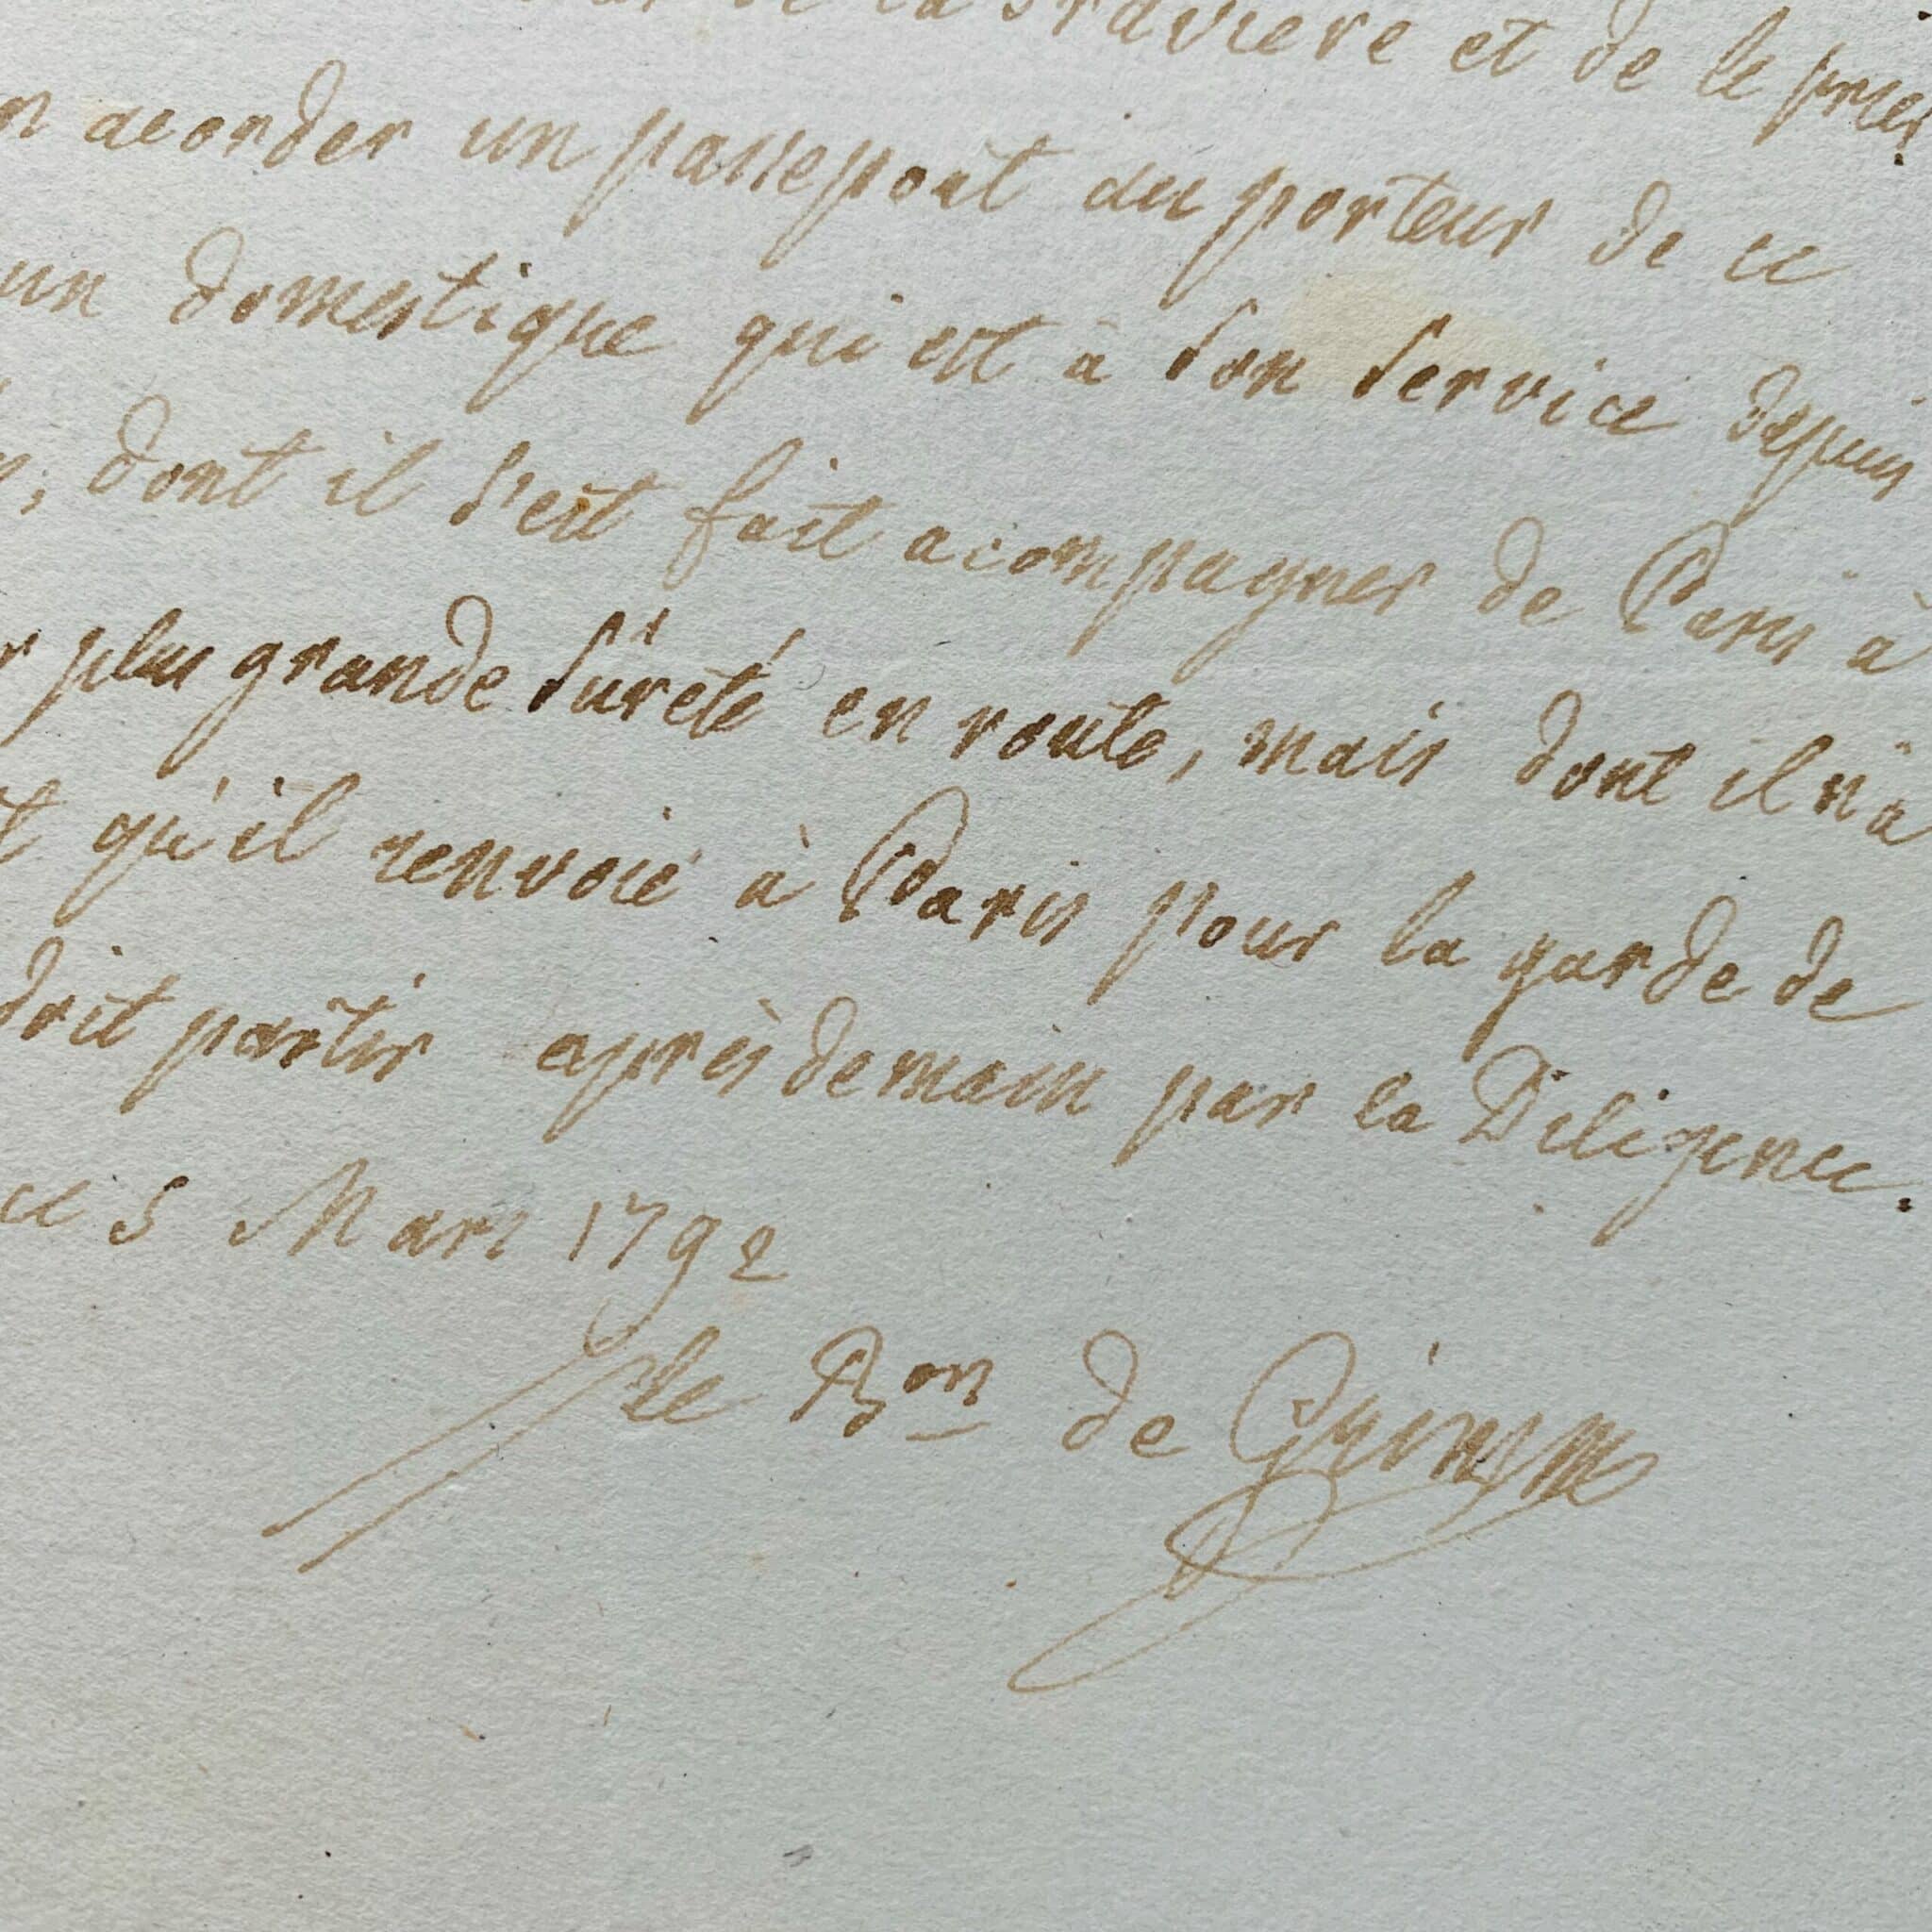 de la Graviere et de le prier
acorder un passeport au porteur de ce
un domestique qui est à son service depuis
, dont il s'est fait acompagner de Paris à
plus grande sûreté en route, mais dont il n'a
qu'il renvoie à Paris pour la garde de
doit partir après demain par la Diligence.
ce 5 Mars 1792
le Bon de Grimm